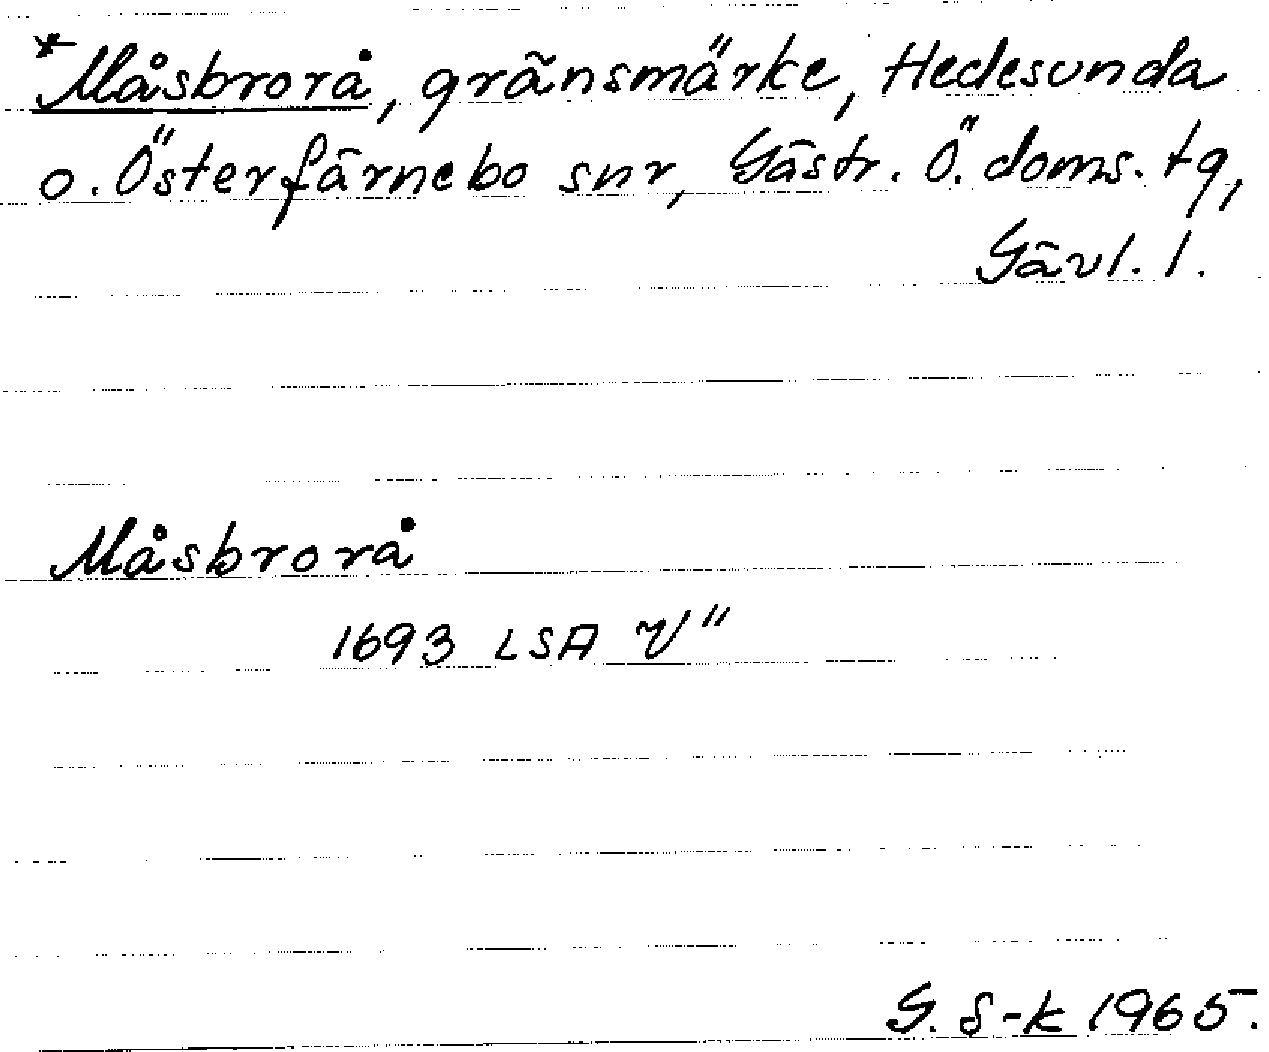 *Måsbrorå, gränsmärke, Hedesunda
o. Österfärnebo snr, Gästr. Ö. doms. tg,
Gävl. l.
Måsbrorå
1693 LSA V"
G. S-k 1965.